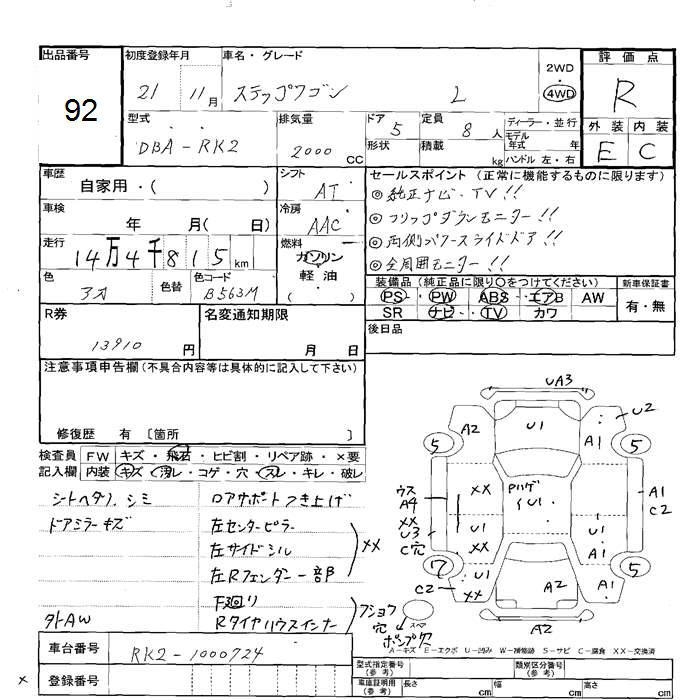 出品番号 初度登録年月 車名・グレード 2WD 評価点
92 21 11月 ステップワゴン L ・ 4WD R
型式 排気量 ドア 定員 ディーラー・並行 外装 内装
DBA-RK2 2000 CC 5 8 人 モデル年式 年 E C
形状 積載 kg ハンドル 左・右
車歴 自家用・( ) シフト AT セールスポイント (正常に機能するものに限ります)
◎純正ナビ・TV!!
車検 年 月( 日) 冷房 AAC ◎フリップダウンモニター!!
走行 14万4千815km 燃料 ガソリン・軽油・( ) ◎両側パワースライドドア!!
◎全周囲モニター!!
色 アオ 色替 色コード B563M
装備品 (純正品に限り○をつけてください) 新車保証書
PS・PW・ABS・エアB AW 有・無
SR ナビ・TV カワ
R券 13910円 名変通知期限 月 日 後日品
注意事項申告欄(不具合内容等は具体的に記入して下さい)
修復歴 有 〔箇所 〕
検査員記入欄 FW キズ・飛石・ヒビ割・リペア跡・×要
内装 キズ・汚レ・コゲ・穴・スレ・キレ・破レ
シートヘタリ、シミ
ドアミラーキズ
外AW
ロアサポートつき上げ
左センターピラー
左サイドシル
左Rフェンダー一部
XX
F廻り
Rタイヤハウスインナー
UA3
A2 U1 U2
A1
5 5
ウス
A4
XX
U3
C穴
XX Pハゲ U1
U1
XX
U1
A1
A1
C2
7 5
U1 A2 A1
C2 XX
A2
フショク
穴 スペア
ポンプ穴
A-キズ E-エクボ U-凹み W-補修跡 S-サビ C-腐食 XX-交換済
車台番号 RK2-1000724
型式指定番号(参考) 類別区分番号(参考)
× 登録番号
車庫証明用(参考) 長さ cm 幅 cm 高さ cm